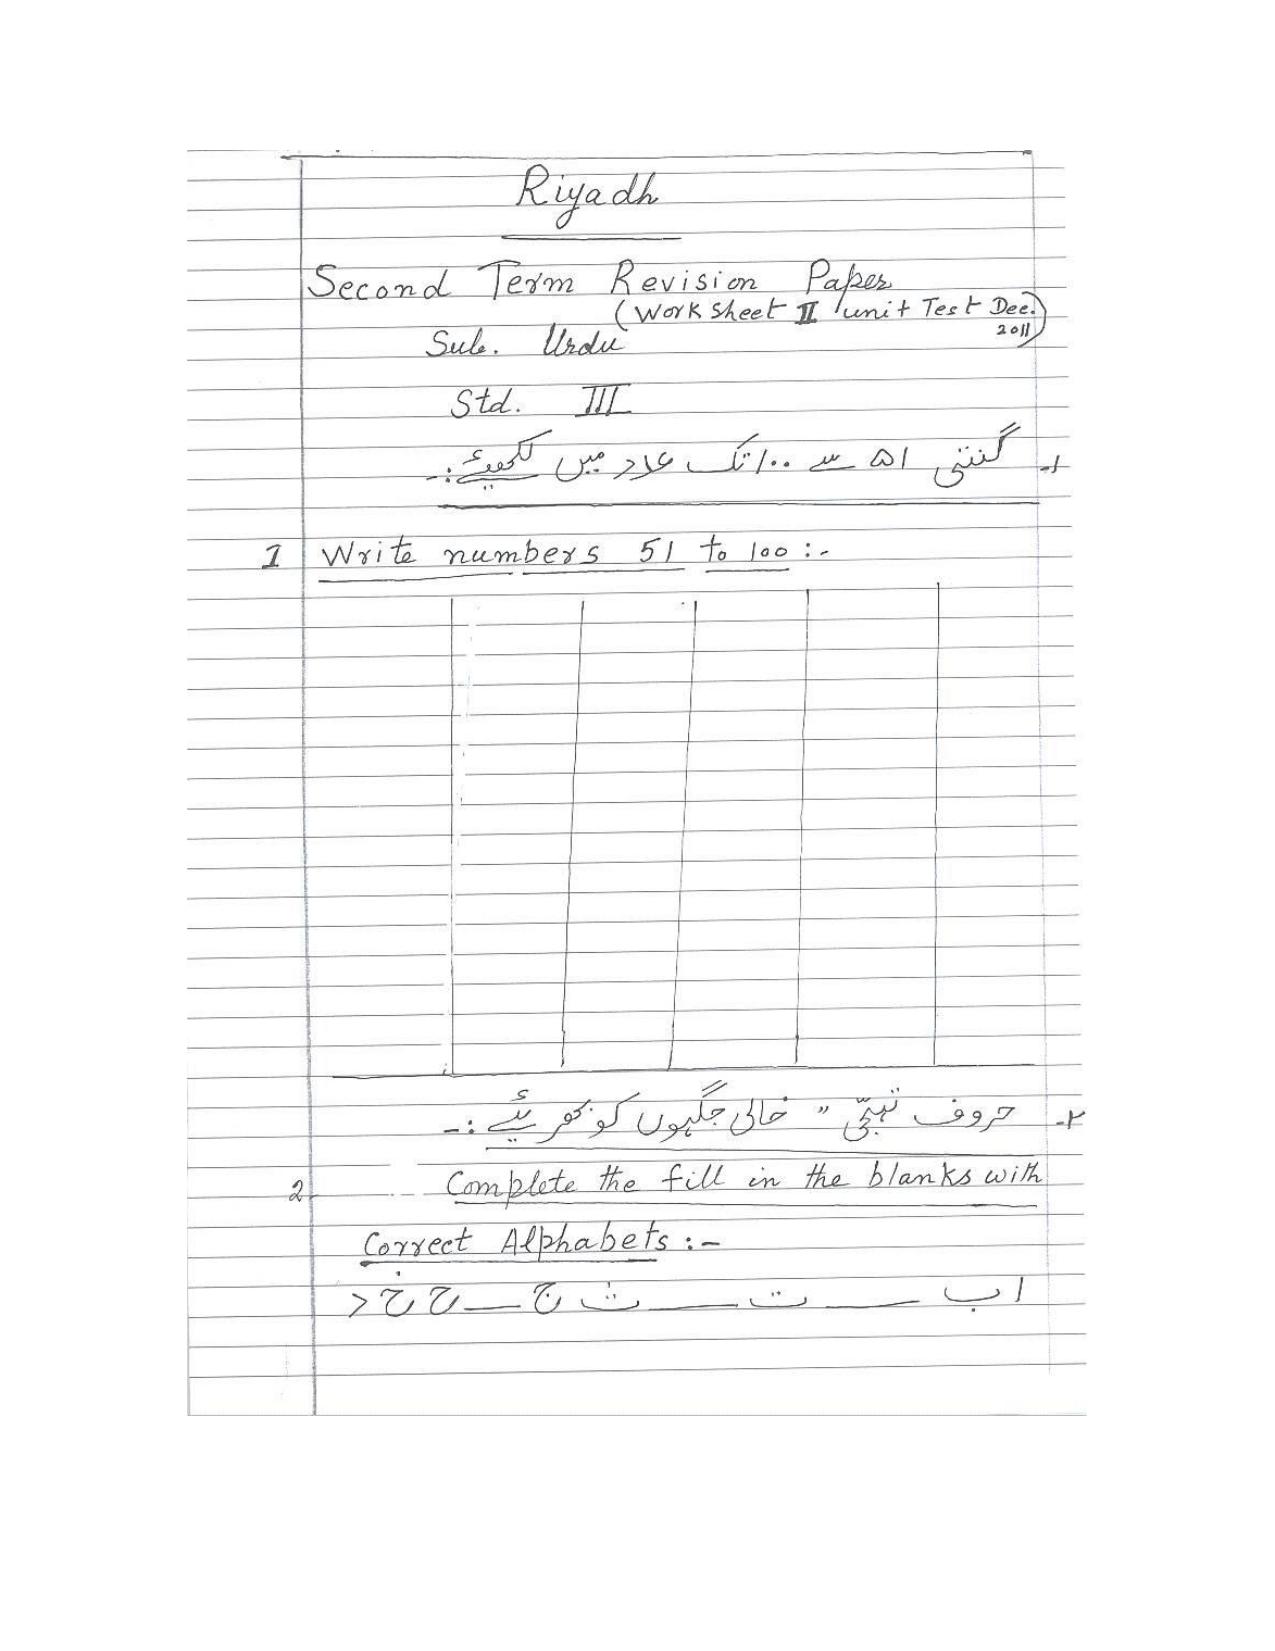 Riyadh
Second Term Revision Paper
(Work Sheet II unit Test Dec. 2011)
Sub. Urdu
Std. III
۱- گنتی ۵۱ سے ۱۰۰ تک عدد میں لکھیئے:-
1 Write numbers 51 to 100 :-
۲- حروف تہجّی " خالی جگہوں کو بھریئے :-
2 Complete the fill in the blanks with
Correct Alphabets :-
ا ب ___ ت ___ ث ج ___ ح خ د